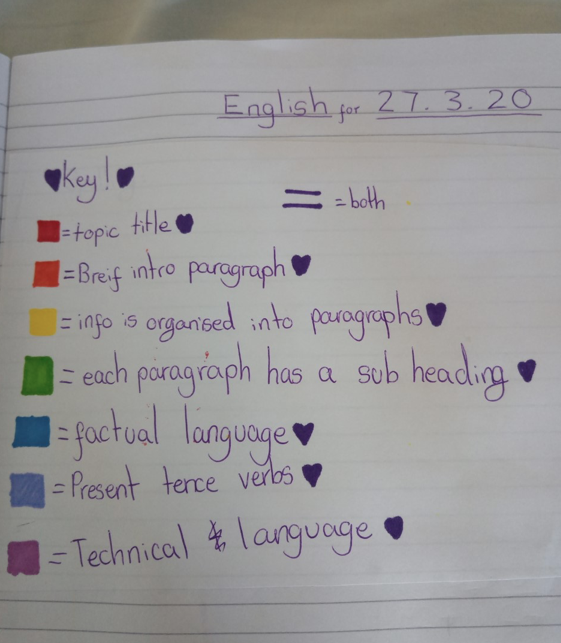 English for 27.3.20
Key!
= both
= topic title
= Breif intro paragraph
= info is organised into paragraphs
= each paragraph has a sub heading
= factual language
= Present tence verbs
= Technical language